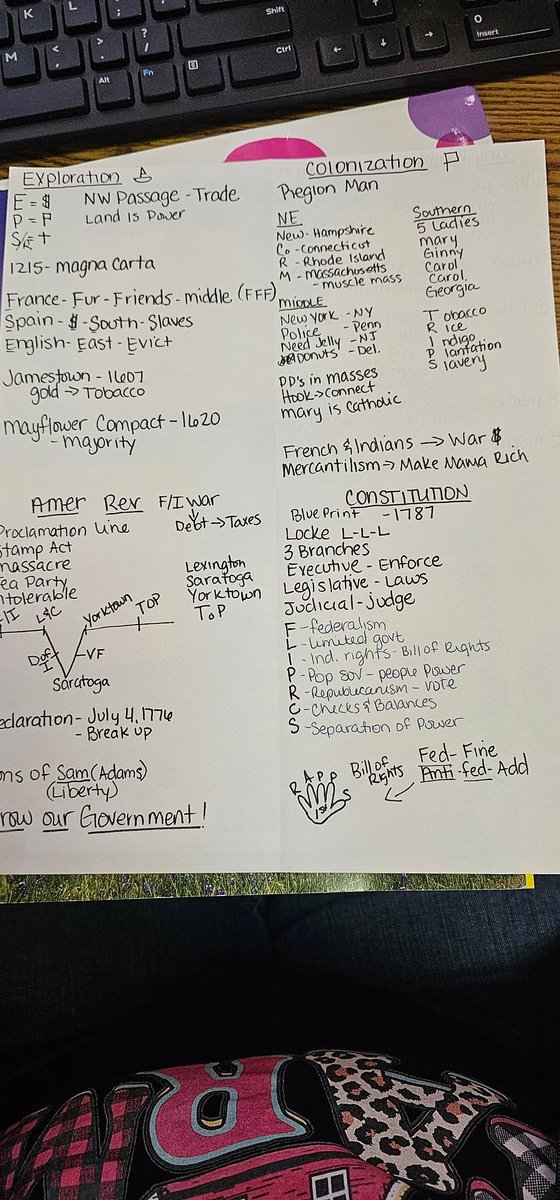 K
L
:
;
"
'
Shift
M
<
,
>
.
?
/
Alt
Fn
Ctrl
O
Insert
Exploration
E = $
P = P
S/E +
NW Passage - Trade
Land is Power
1215 - Magna Carta
France - Fur - Friends - middle (FFF)
Spain - $ - South - Slaves
English - East - Evict
Jamestown - 1607
gold → Tobacco
Mayflower Compact - 1620
- majority
Colonization
Region Man
NE
New - Hampshire
Co - Connecticut
R - Rhode Island
M - Massachusetts
- muscle mass
Middle
New York - NY
Police - Penn
Need Jelly - NJ
Donuts - Del.
Southern
5 Ladies
mary
Ginny
Carol
Carol
Georgia
Tobacco
Rice
Indigo
Plantation
Slavery
PP's in masses
Hook → connect
mary is Catholic
French & Indians → War $
Mercantilism → Make Mama Rich
Amer Rev
F/I War
↓
Debt → Taxes
Proclamation Line
Stamp Act
massacre
ea Party
ntolerable
Lexington
Saratoga
Yorktown
ToP
F/I
L&C
Yorktown
TOP
D of I
VF
Saratoga
eclaration - July 4, 1776
- Break up
ons of Sam (Adams)
(Liberty)
row our Government!
CONSTITUTION
Blue Print - 1787
Locke L-L-L
3 Branches
Executive - Enforce
Legislative - Laws
Judicial - judge
F - federalism
L - Limited govt
I - Ind. rights - Bill of Rights
P - Pop sov - people Power
R - Republicanism - vote
C - Checks & Balances
S - Separation of Power
R A P P S
1st
Bill of Rights
Fed - Fine
Anti - fed - Add